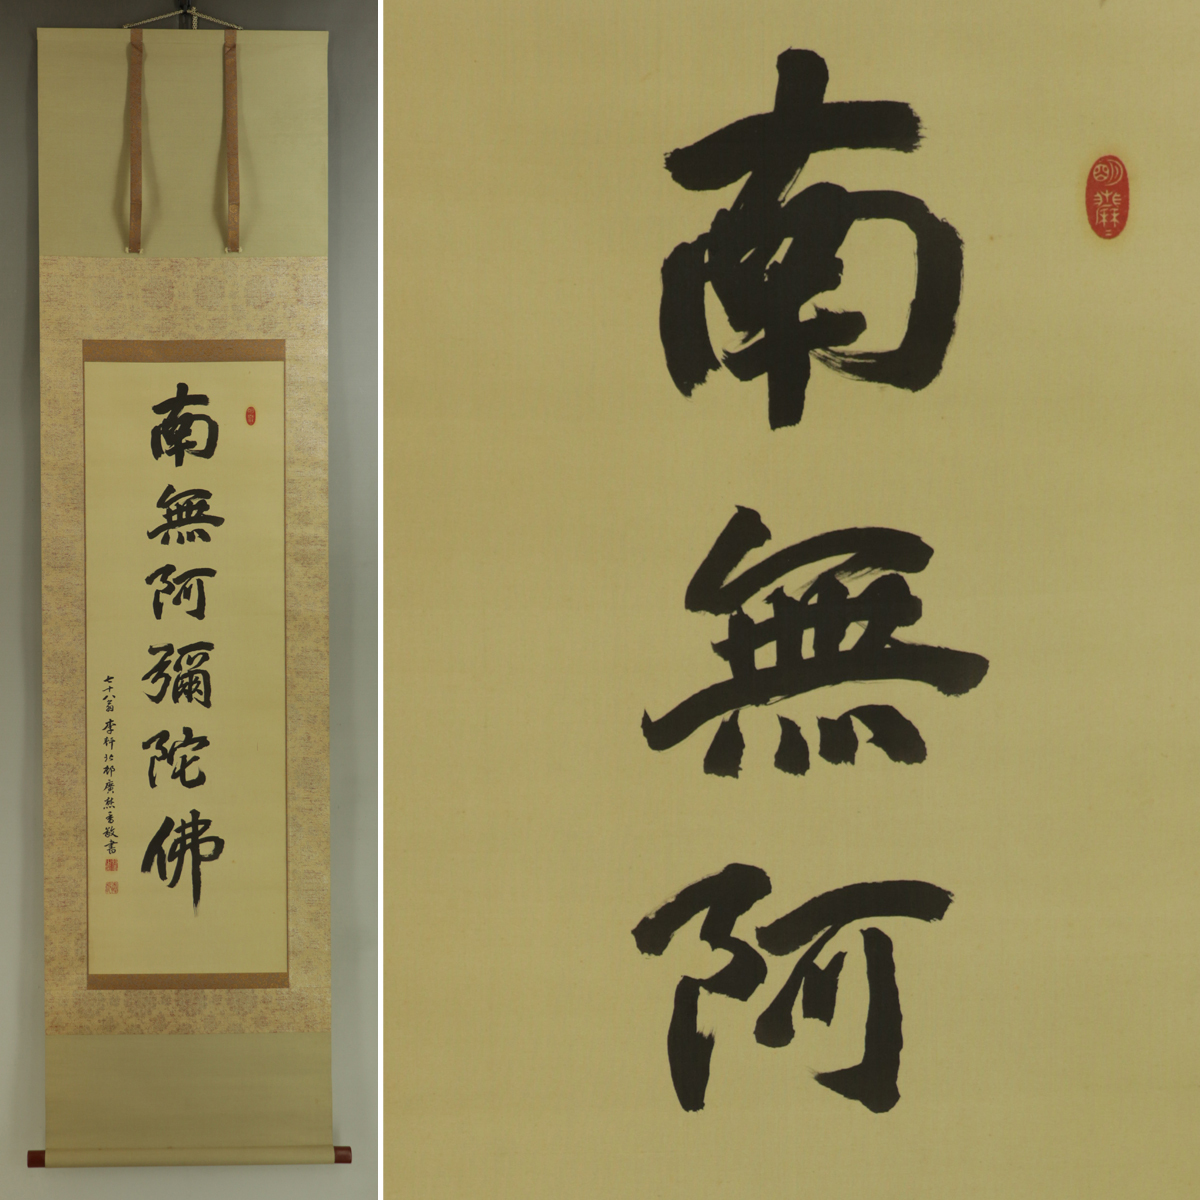 南無阿彌陀佛
七十八翁 李軒 廣熊重敬書
南無阿